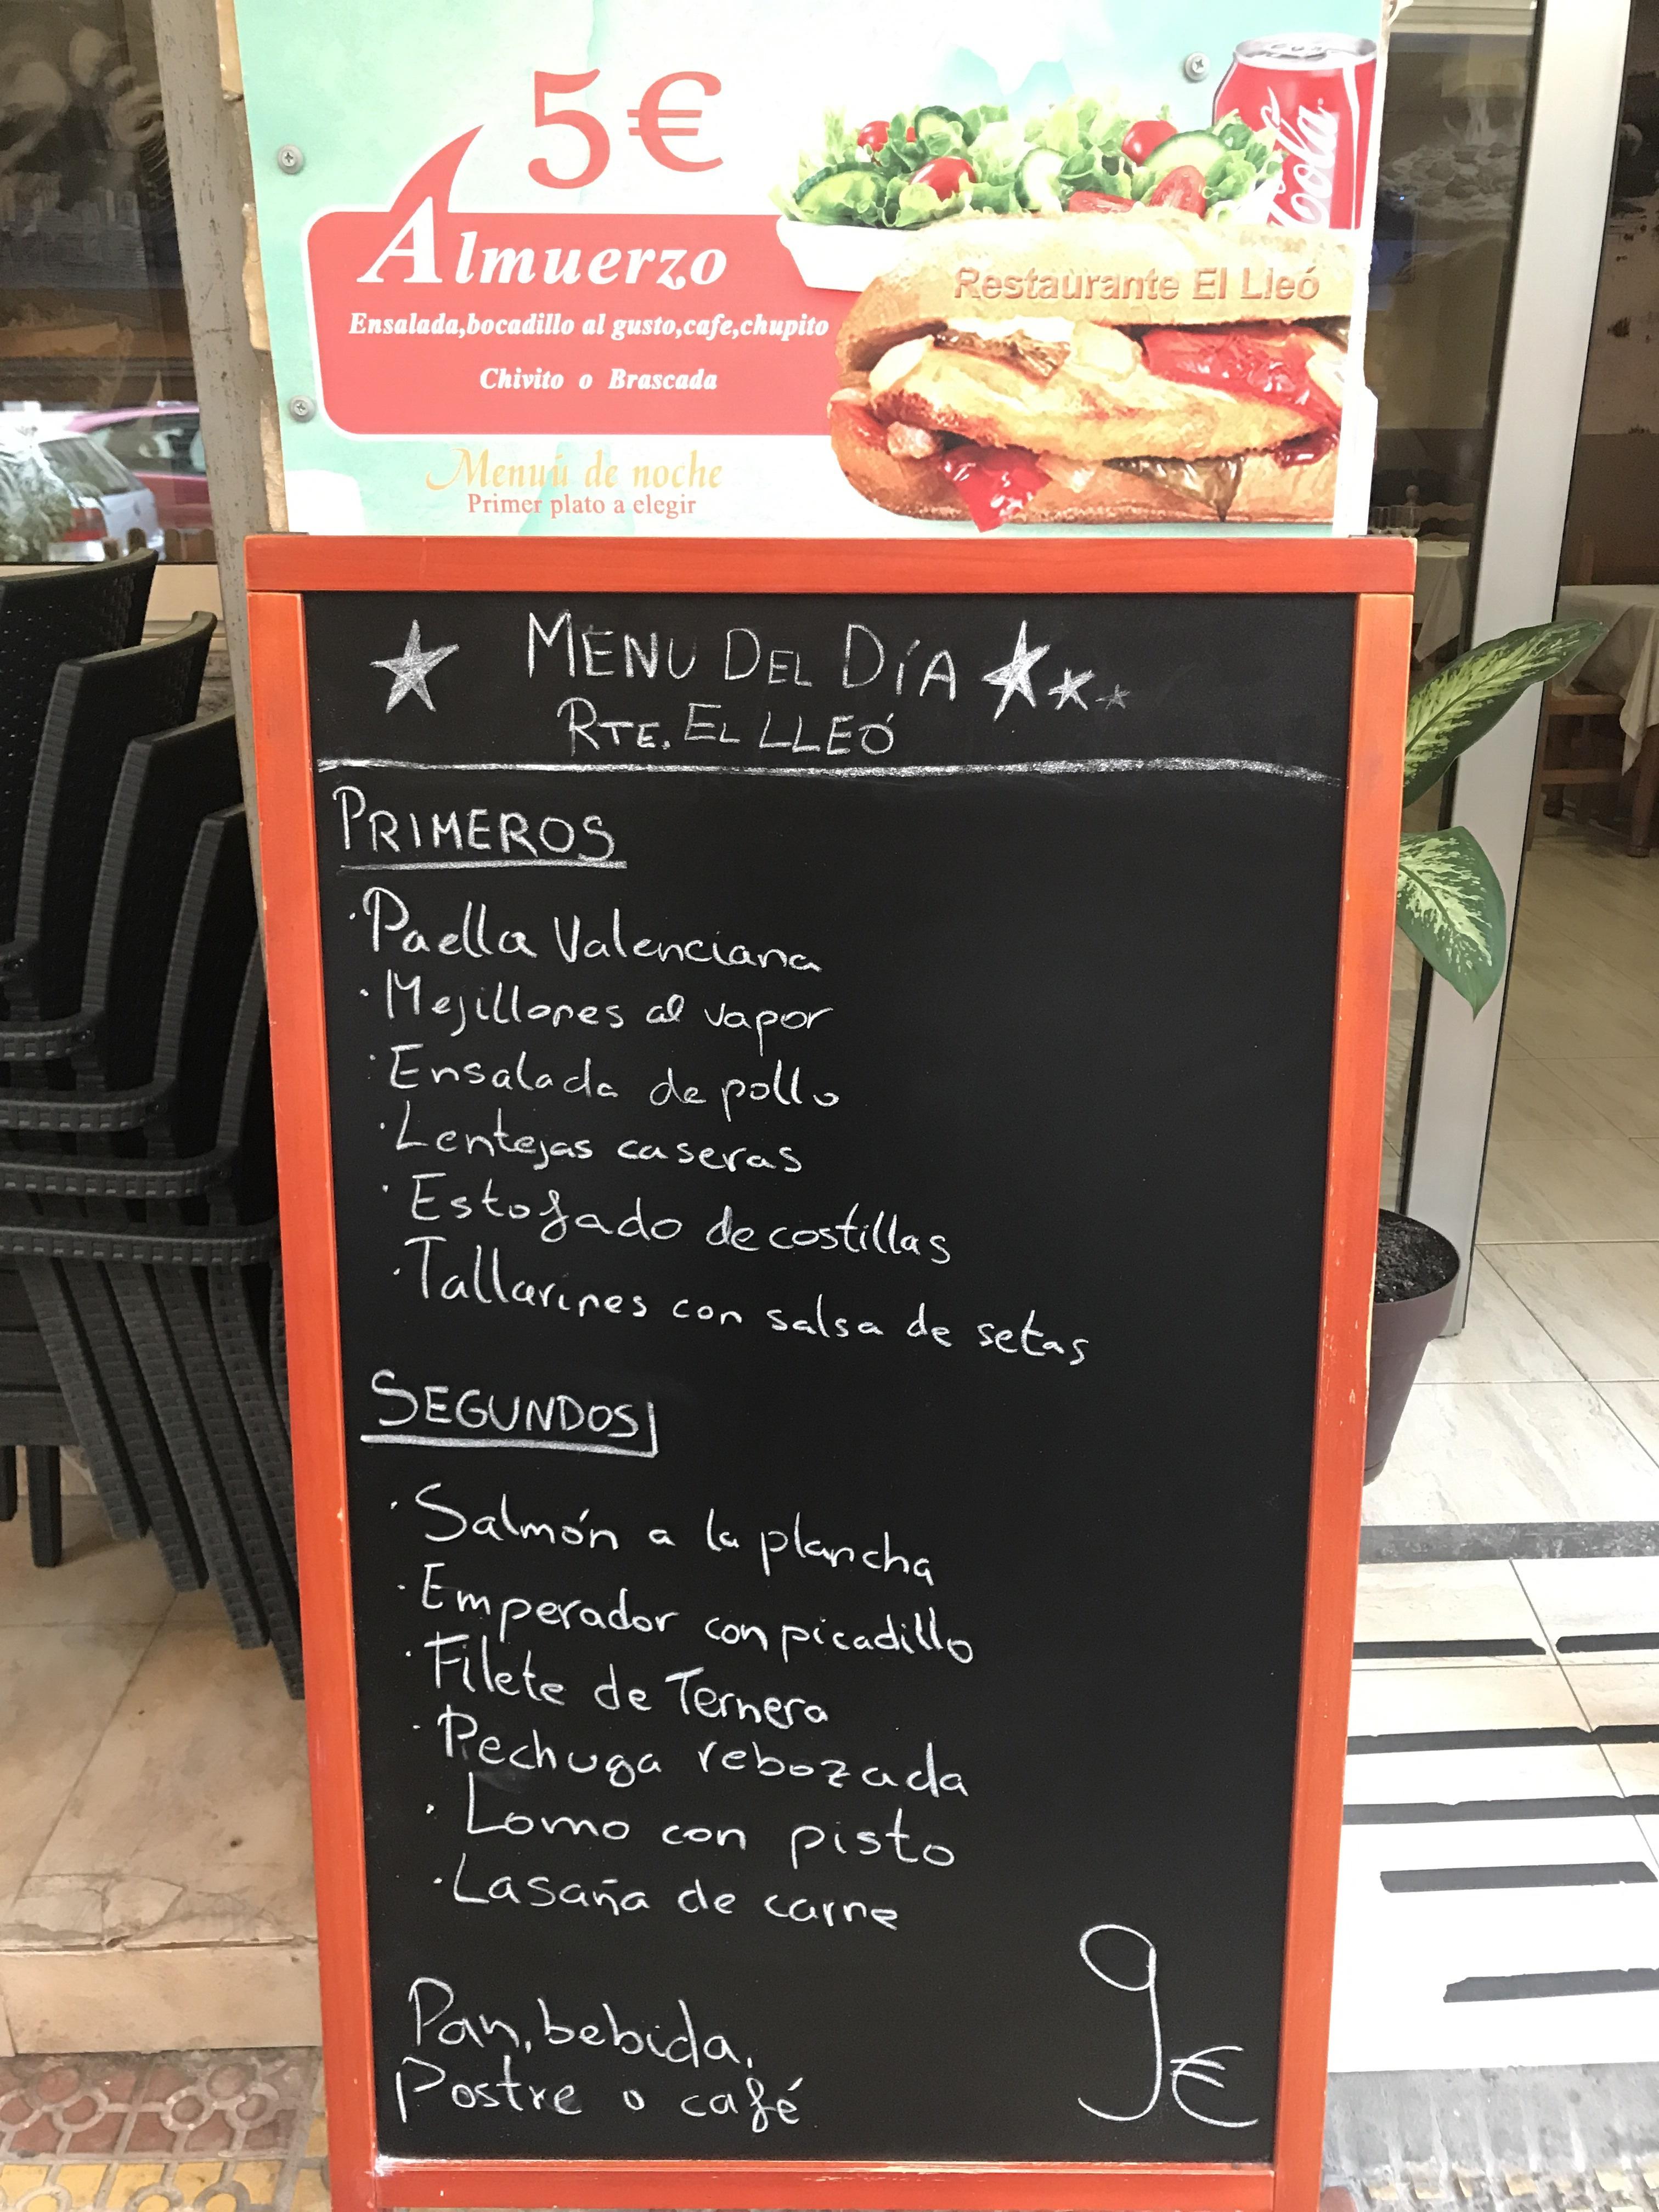 5€
Almuerzo
Ensalada,bocadillo al gusto,cafe,chupito
Chivito o Brascada
Menuú de noche
Primer plato a elegir
Restaurante El Lleó
Cola
MENU DEL DÍA
RTE. EL LLEÓ
PRIMEROS
·Paella Valenciana
·Mejillones al vapor
·Ensalada de pollo
·Lentejas caseras
·Estofado de costillas
·Tallarines con salsa de setas
SEGUNDOS
·Salmón a la plancha
·Emperador con picadillo
·Filete de Ternera
·Pechuga rebozada
·Lomo con pisto
·Lasaña de carne
Pan, bebida,
Postre o café
9€